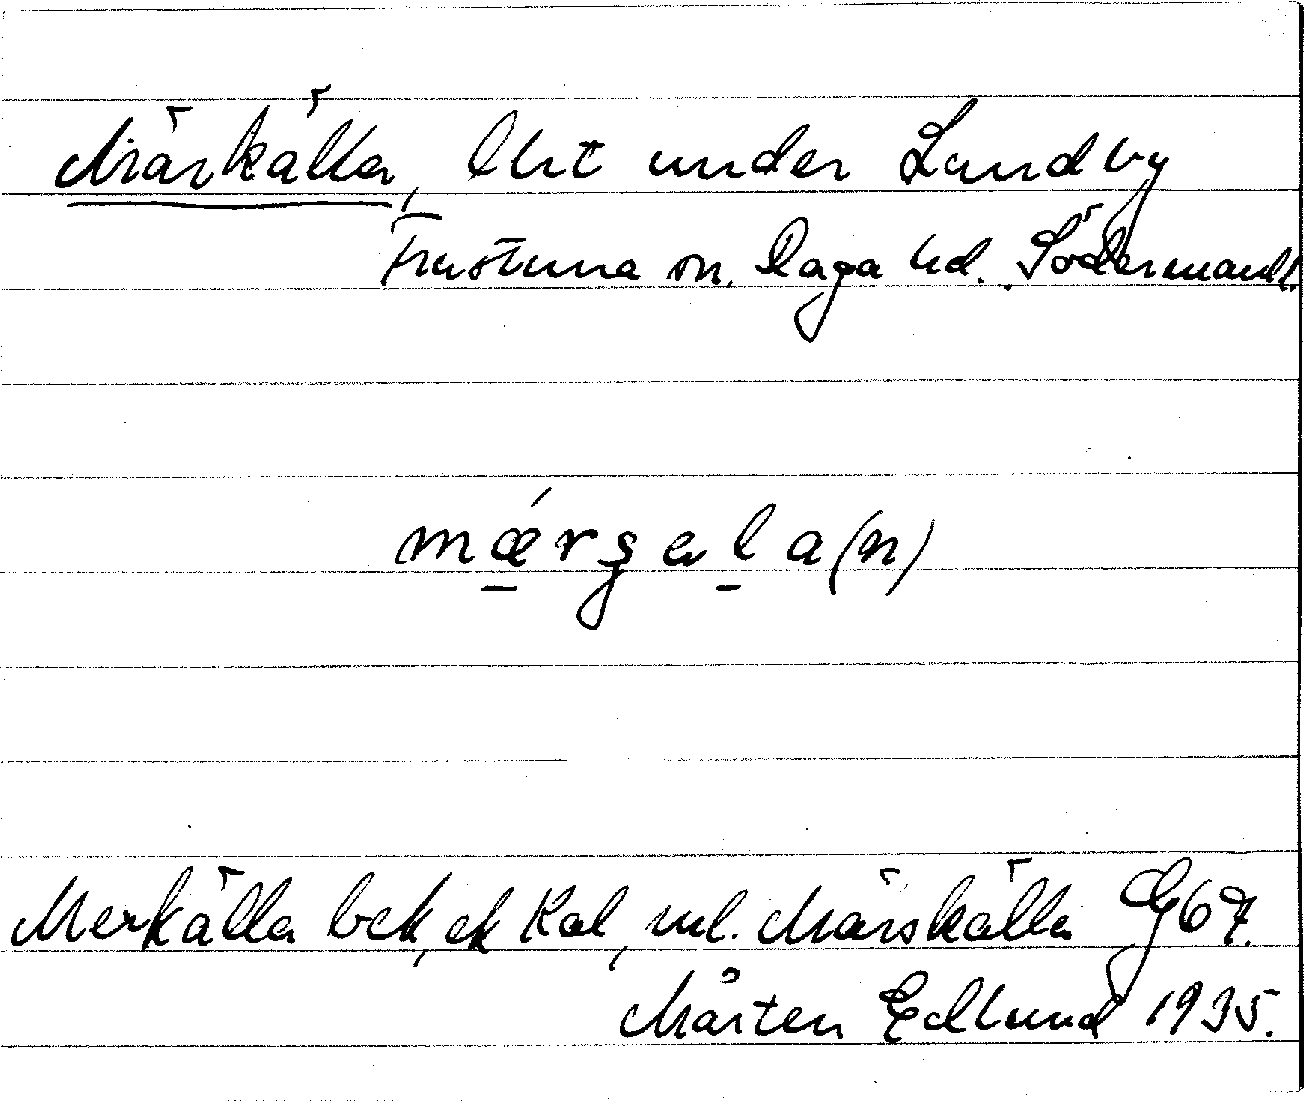 Märkälla, lht under Landby
Frustuna sn. Daga hd. Södermanl.
mǽrgala(n)
Merkälla bek, ek Kal, ml. Märskälla G67.
Mårten Edlund 1935.